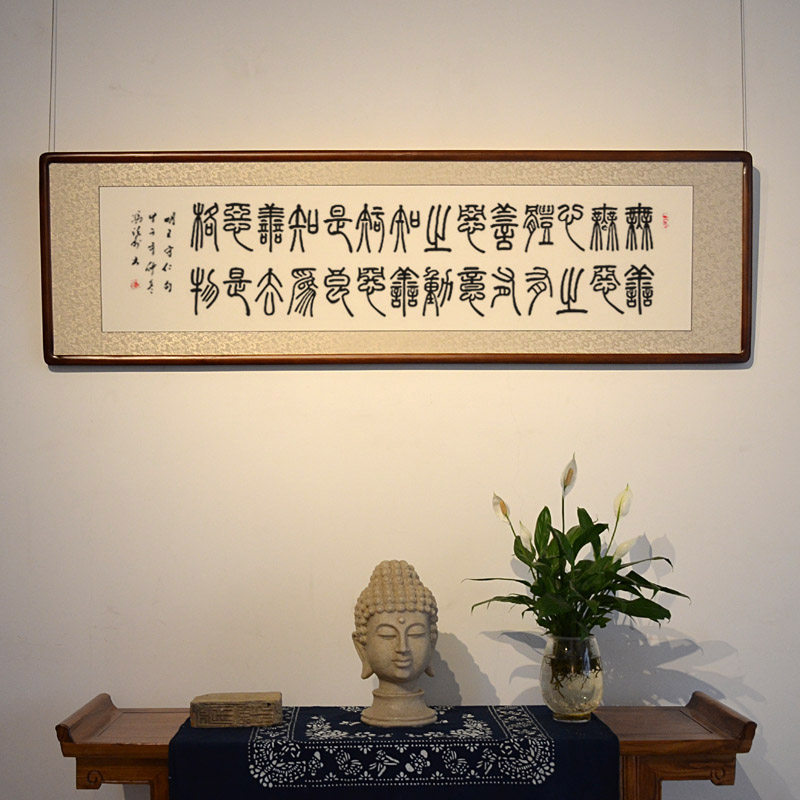 無善
無惡
心之
體有
善有
惡意
之動
知善
知惡
是良
知為
善去
惡是
格物
明王守仁句
甲午年仲